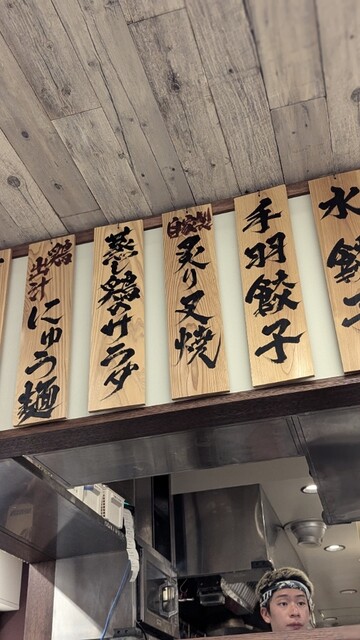 水餃子
手羽餃子
自家製
炙り叉焼
蒸し鶏のサラダ
鶏
出汁
にゅう麺